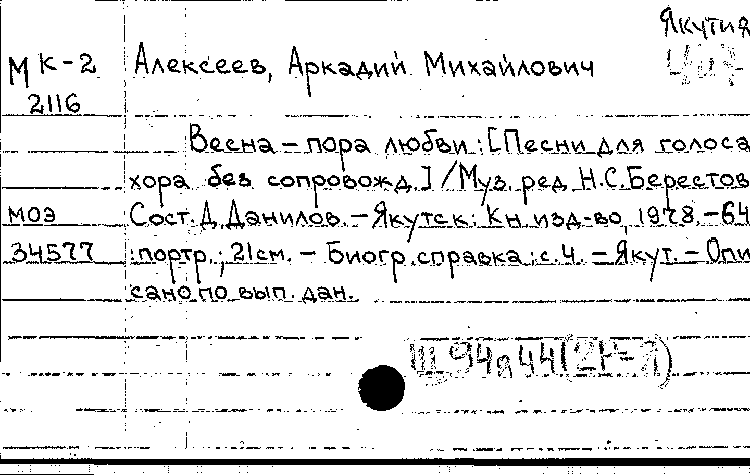 Якутия
МК-2 Алексеев, Аркадий Михайлович
2116
Весна – пора любви: [Песни для голоса
хора без сопровожд.] / Муз. ред. Н.С. Берестов
МОЭ Сост. Д. Данилов. – Якутск: Кн. изд-во, 1978. – 64
34577 : портр.; 21см. – Биогр. справка: с.4. – Якут. – Опи
сано по вып. дан.
Щ94я44(2Р-Я)